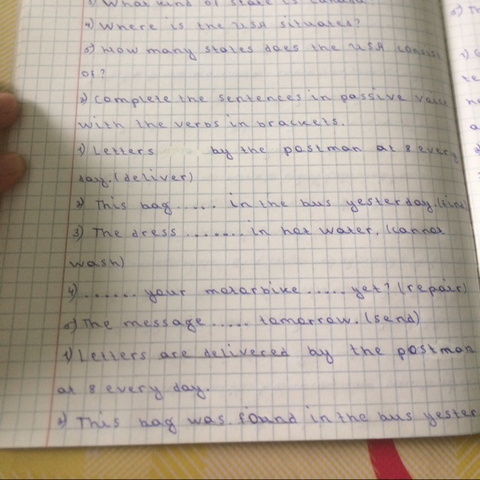 3) What kind of state is Canada
4) Where is the USA situates?
5) How many states does the USA consist
of?
2) Complete the sentences in passive voice
with the verbs in brackets.
1) Letters by the postman at 8 every
day. (deliver)
2) This bag ..... in the bus yesterday. (find)
3) The dress ....... in hot water. (cannot
wash)
4) ...... your motorbike ..... yet? (repair)
5) The message ..... tomorrow. (send)
1) Letters are delivered by the postman
at 8 every day.
2) This bag was found in the bus yester